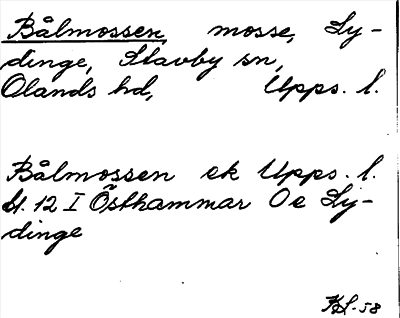 Bålmossen, mosse, Ly-
dinge, Stavby sn,
Olands hd, Upps. l.
Bålmossen ek Upps. l.
bl. 12 I Östhammar Oe Ly-
dinge
KL-58